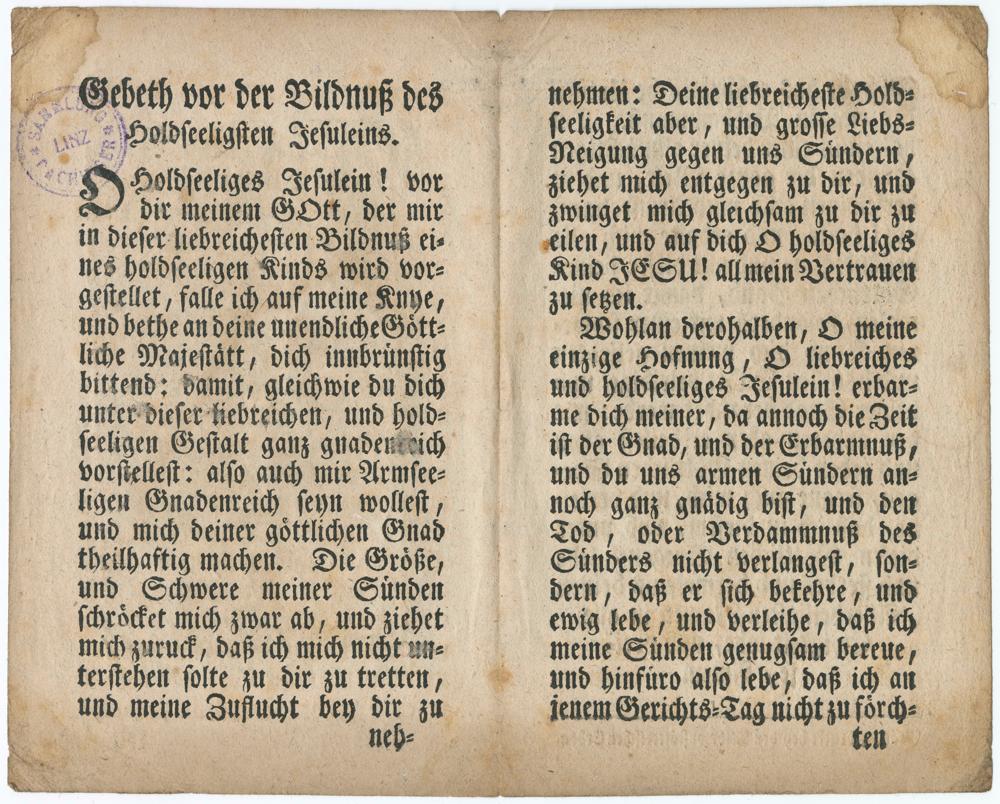 Gebeth vor der Bildnuß des
Holdseeligsten Jesuleins.
O Holdseeliges Jesulein! vor
dir meinem GOtt, der mir
in dieser liebreichesten Bildnuß ei-
nes holdseeligen Kinds wird vor-
gestellet, falle ich auf meine Knye,
und bethe an deine unendliche Gött-
liche Majestätt, dich innbrünstig
bittend: damit, gleichwie du dich
unter dieser liebreichen, und hold-
seeligen Gestalt ganz gnadenreich
vorstellest: also auch mir Armsee-
ligen Gnadenreich seyn wollest,
und mich deiner göttlichen Gnad
theilhaftig machen. Die Größe,
und Schwere meiner Sünden
schröcket mich zwar ab, und ziehet
mich zuruck, daß ich mich nicht un-
terstehen solte zu dir zu tretten,
und meine Zuflucht bey dir zu
neh-
SAMMLUNG
LINZ
nehmen: Deine liebreicheste Hold-
seeligkeit aber, und grosse Liebs-
Neigung gegen uns Sündern,
ziehet mich entgegen zu dir, und
zwinget mich gleichsam zu dir zu
eilen, und auf dich O holdseeliges
Kind JESU! all mein Vertrauen
zu setzen.
Wohlan derohalben, O meine
einzige Hofnung, O liebreiches
und holdseeliges Jesulein! erbar-
me dich meiner, da annoch die Zeit
ist der Gnad, und der Erbarmnuß,
und du uns armen Sündern an-
noch ganz gnädig bist, und den
Tod, oder Verdammnuß des
Sünders nicht verlangest, son-
dern, daß er sich bekehre, und
ewig lebe, und verleihe, daß ich
meine Sünden genugsam bereue,
und hinfüro also lebe, daß ich an
jenem Gerichts-Tag nicht zu förch-
ten